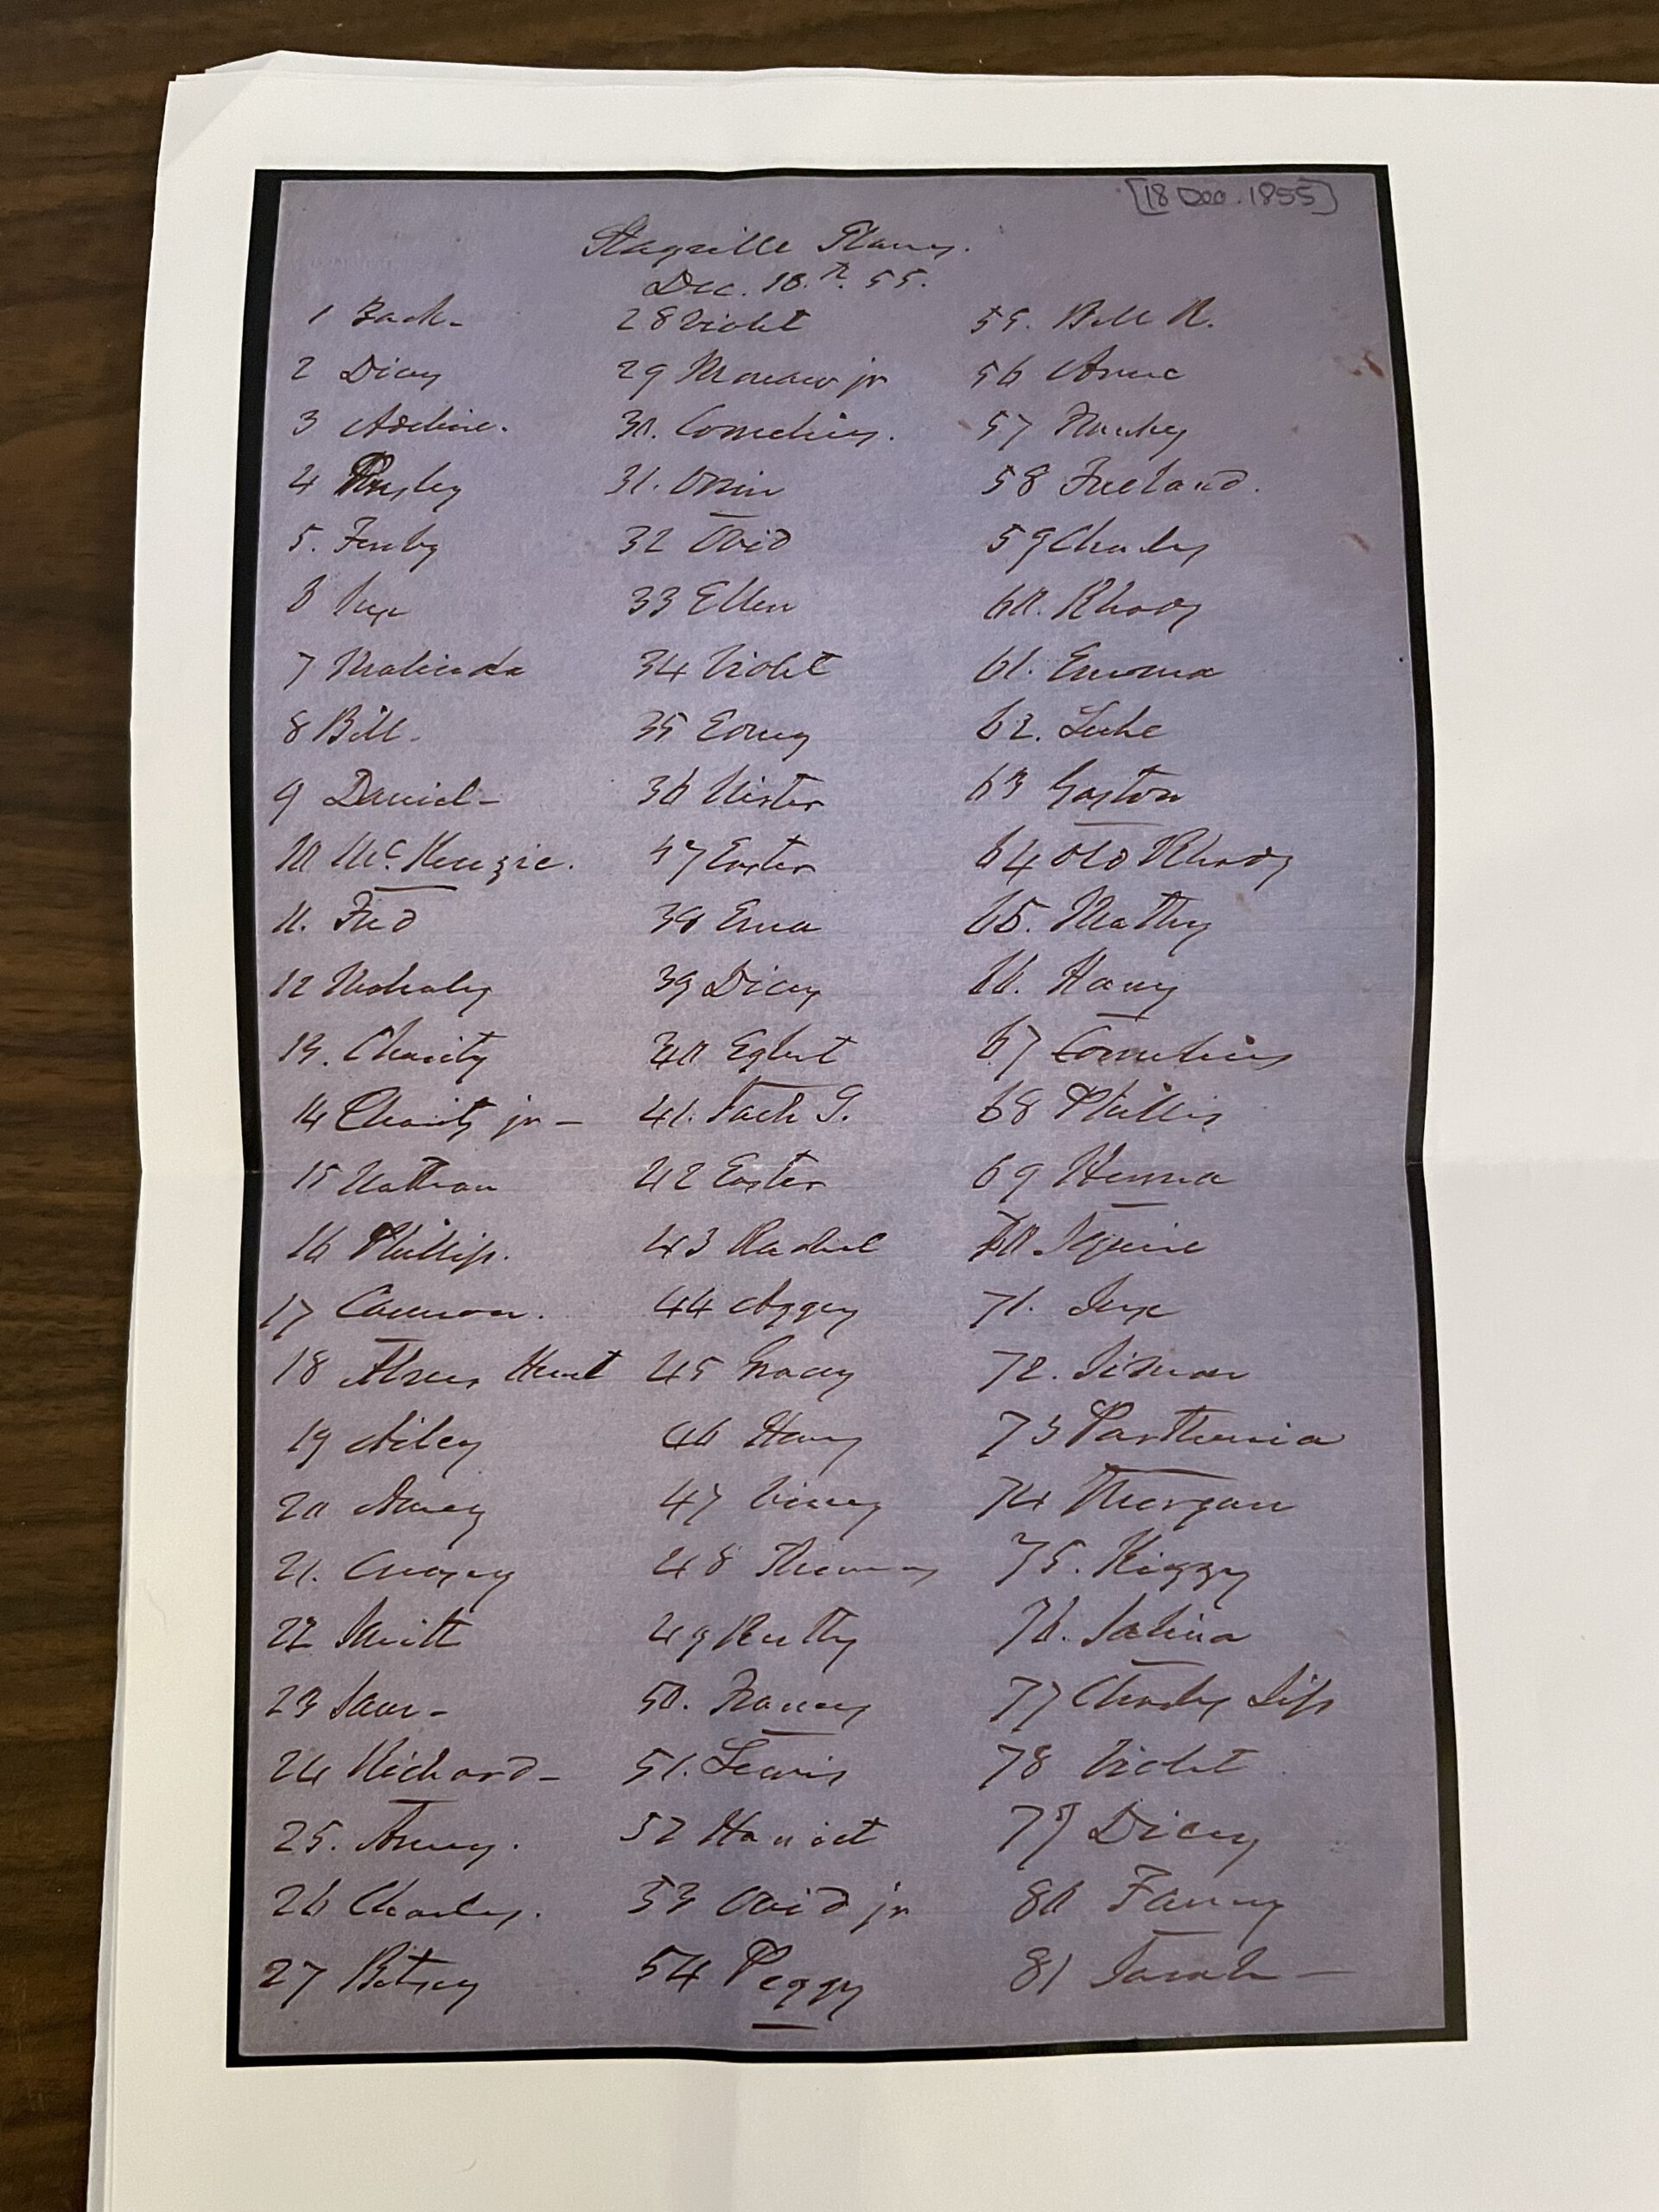 [18 Dec. 1855]
Stagville Slaves.
Dec. 18.th 55.
1 Zack-
2 Dicey
3 Adeline.
4
5. Ferby
6
7 Malinda
8 Bill.
9 Daniel-
10 McKenzie.
11. Fred
12 Mohaly
13. Charity
14 Charity jr-
15 Nathan
16 Phillip.
17 Cameron.
18 Abner Hunt
19 Ailey
20
21.
22 Smith
23 Sam-
24 Richard-
25.
26 Charles.
27 Betsey
28 Violet
29 jr
30. Cornelius.
31. Orin
32 Ovid
33 Ellen
34 Violet
35
36 Hester
37 Easter
38 Erna
39 Dicey
40 Egbert
41. Zack G.
42 Easter
43 Rachel
44 Aggey
45 Gracey
46 Harry
47 Viney
48 Thomas
49
50.
51. Lewis
52 Harriet
53 Ovid jr
54 Peggy
55. Bill R.
56 Anne
57
58 Freeland.
59 Charles
60. Rhody
61. Emoma
62. Luke
63 Gaston
64 Old Rhody
65. Mathy
66. Harry
67 Cornelius
68 Phillis
69 Henna
70 Squire
71.
72.
73 Parthenia
74 Morgan
75. Kizzy
76. Salina
77 Charles Sips
78 Violet
79 Dicey
80 Fanny
81 Sarah-